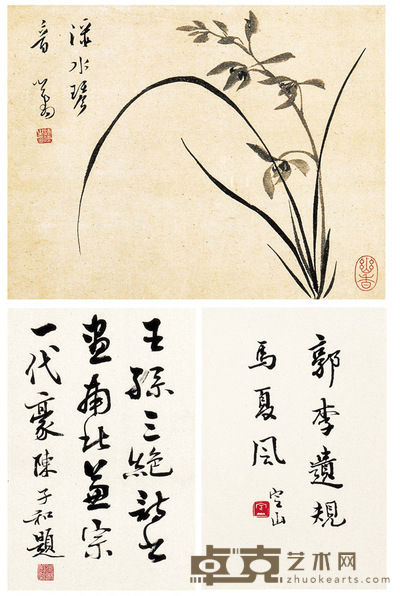 水琴
音 心畬
幽香
王孫三絕詩書
畫南北兼宗
一代豪 陳子和題
郭李遺規
馬夏風 空山
卓克艺术网
zhuokearts.com